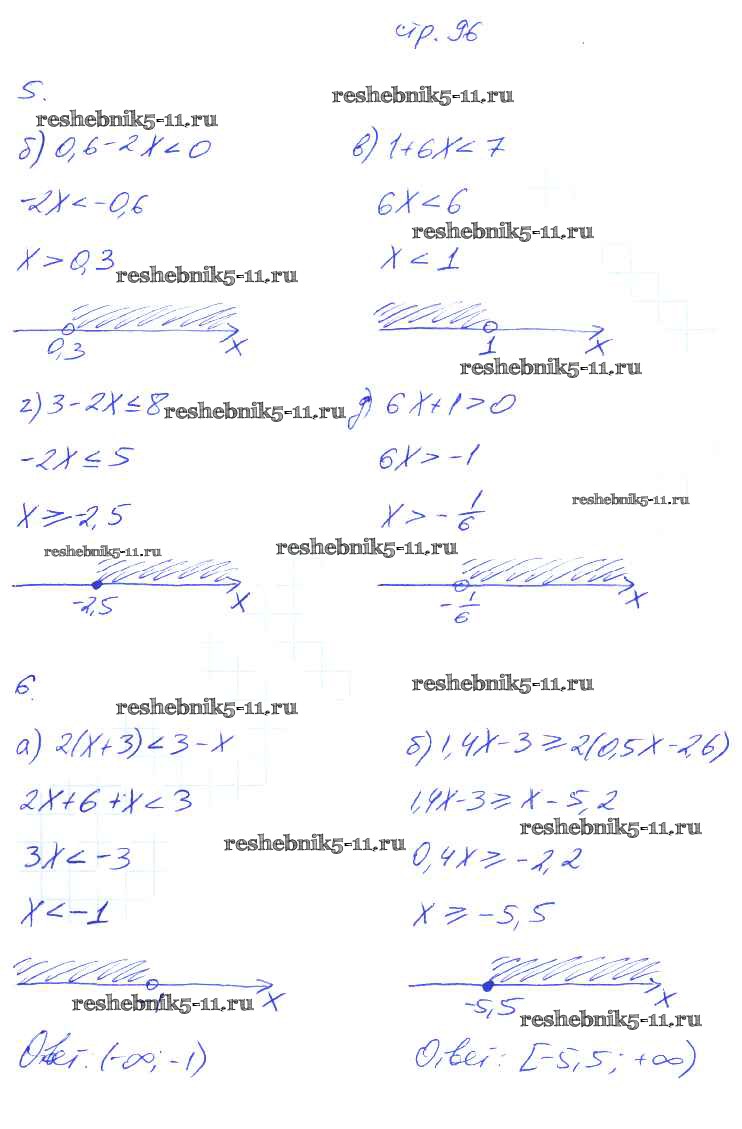 стр. 96
5.
reshebnik5-11.ru
reshebnik5-11.ru
б) 0,6-2x<0
-2x<-0,6
x>0,3
reshebnik5-11.ru
0,3
x
в) 1+6x<7
6x<6
reshebnik5-11.ru
x<1
1
x
reshebnik5-11.ru
г) 3-2x≤8
reshebnik5-11.ru
-2x≤5
x≥-2,5
reshebnik5-11.ru
reshebnik5-11.ru
-2,5
x
д) 6x+1>0
6x>-1
x>-1/6
reshebnik5-11.ru
-1/6
x
6.
reshebnik5-11.ru
reshebnik5-11.ru
а) 2(x+3)<3-x
2x+6+x<3
3x<-3
reshebnik5-11.ru
x<-1
-1
x
reshebnik5-11.ru
Ответ: (-∞; -1)
б) 1,4x-3≥2(0,5x-2,6)
1,4x-3≥x-5,2
reshebnik5-11.ru
0,4x≥-2,2
x≥-5,5
-5,5
x
reshebnik5-11.ru
Ответ: [-5,5; +∞)